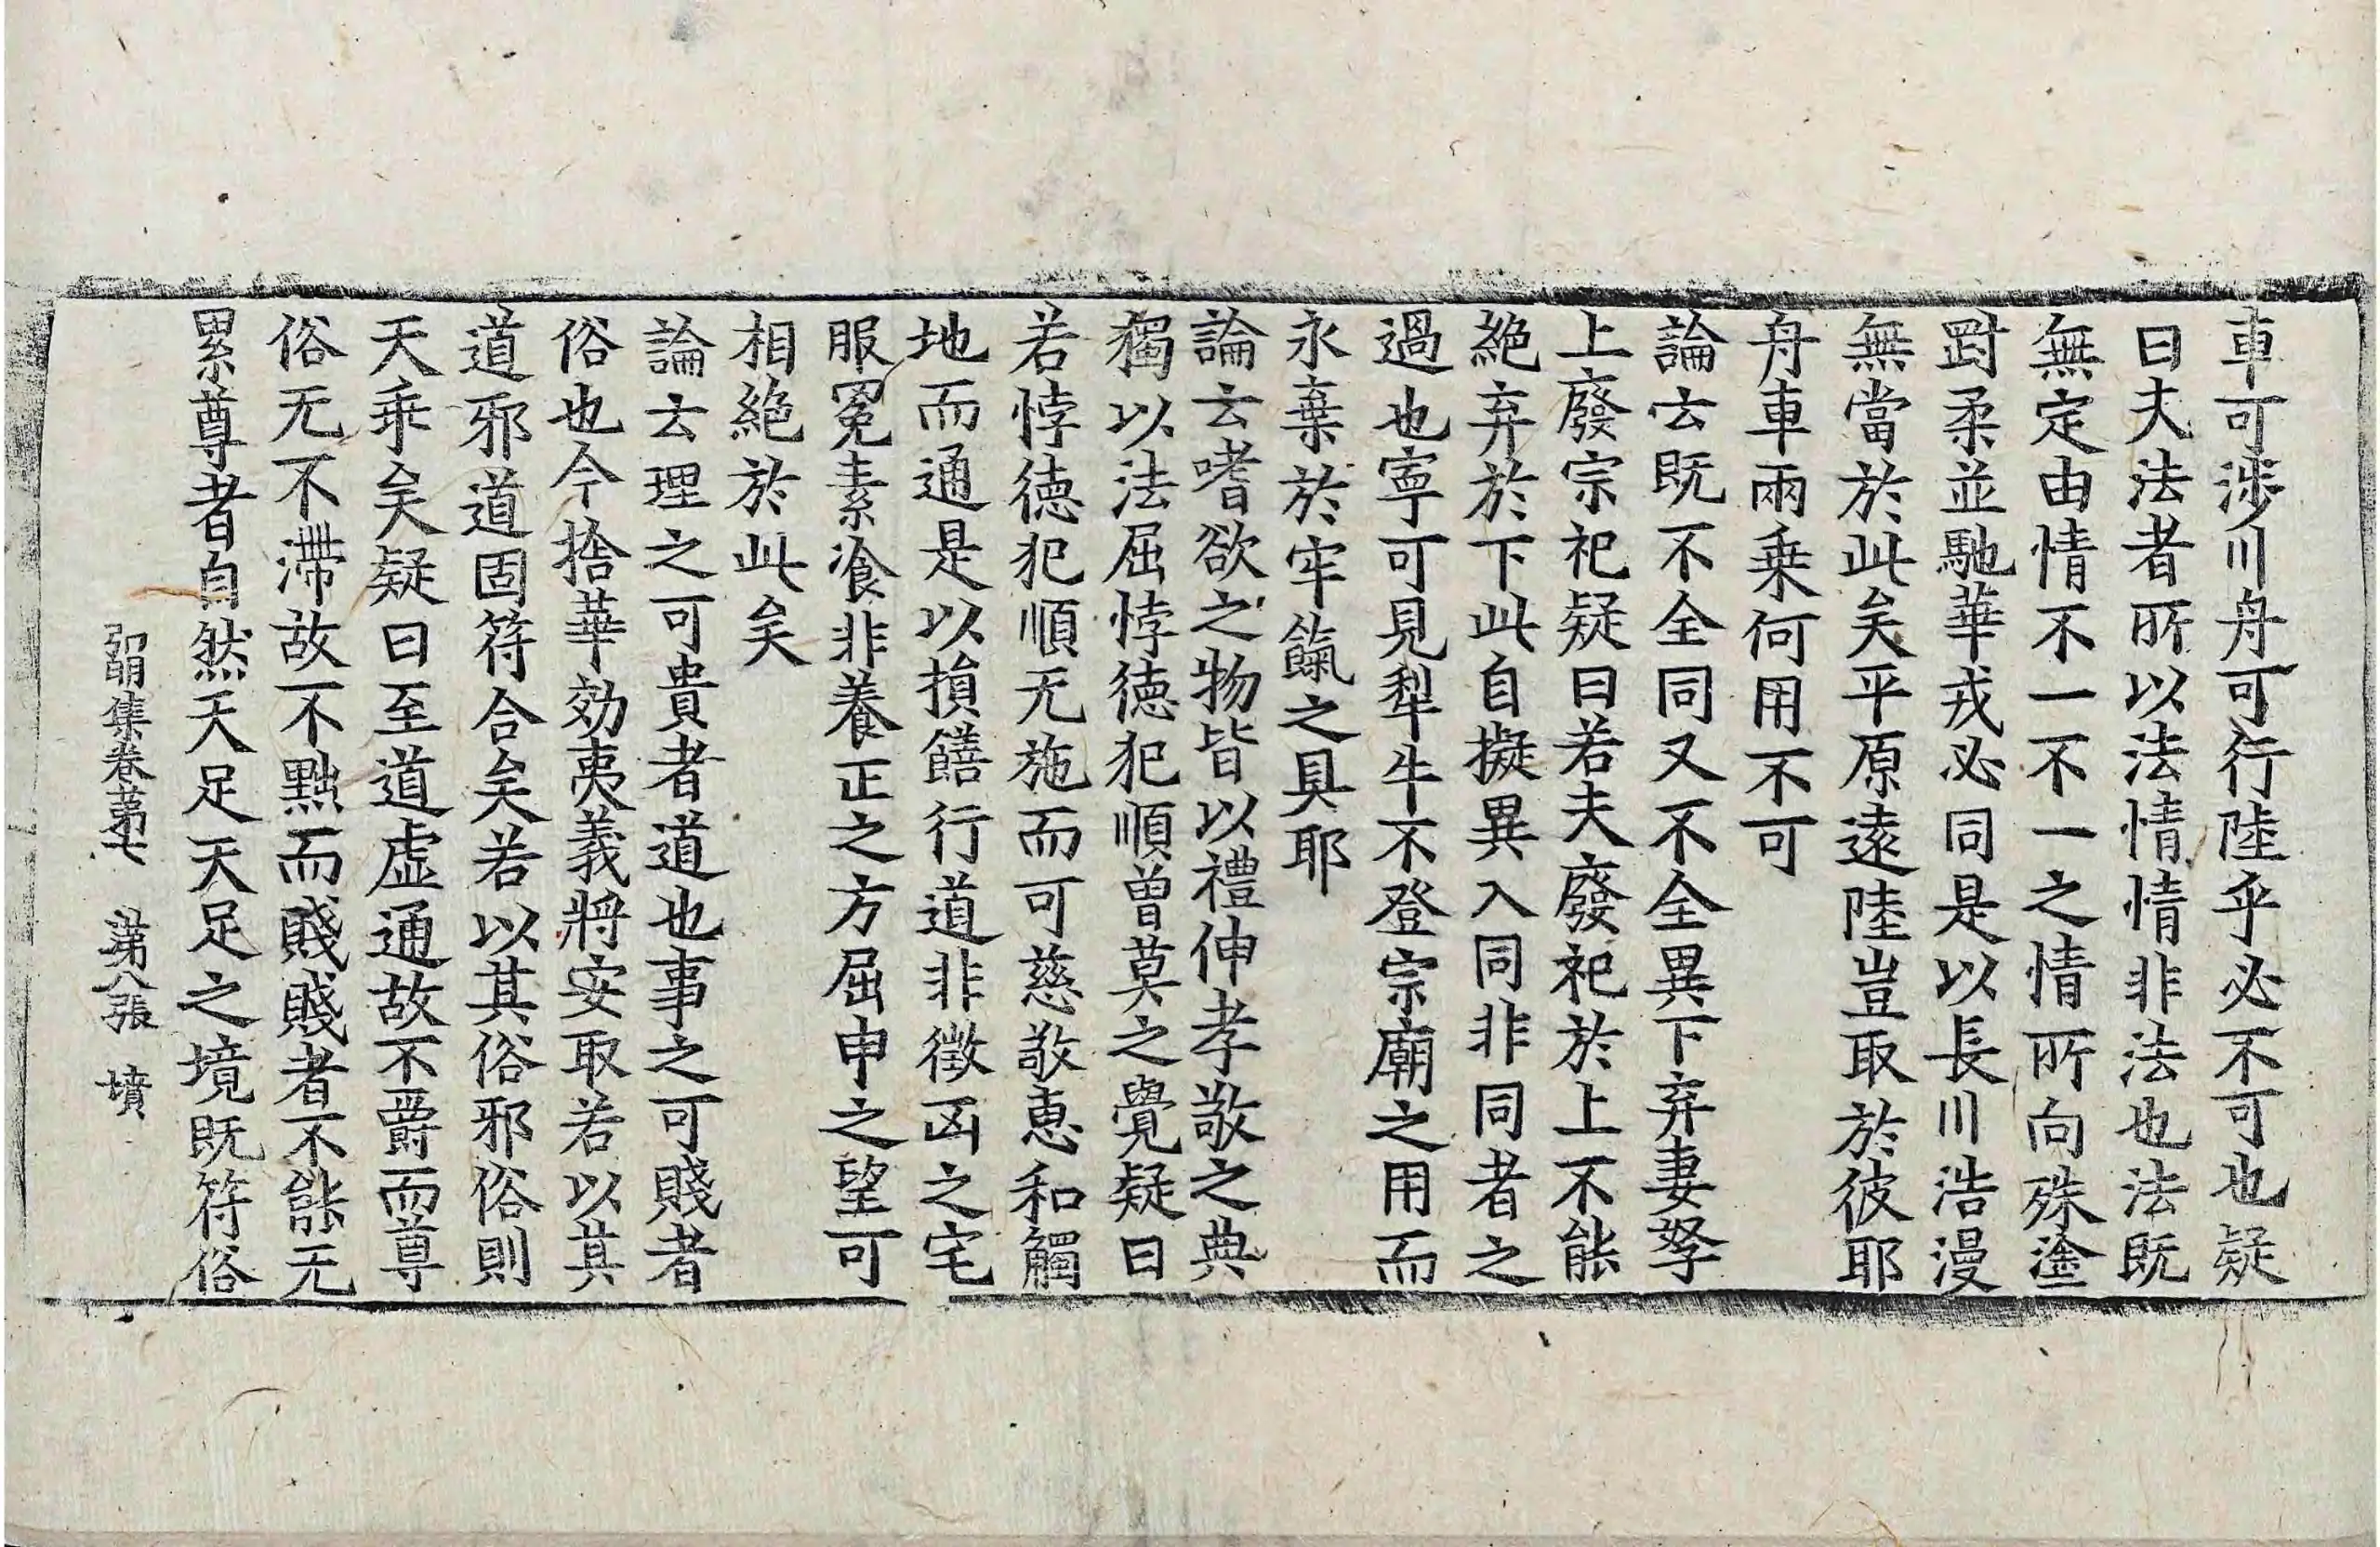 車可涉川舟可行陸乎必不可也疑
曰夫法者所以法情情非法也法既
無定由情不一不一之情所向殊塗
對柔並馳華戎必同是以長川浩漫
無當於此矣平原遠陸豈取於彼耶
舟車兩乗何用不可
論云既不全同又不全異下弃妻孥
上廢宗祀疑曰若夫廢祀於上不能
絶弃於下此自擬異入同非同者之
過也寧可見犁牛不登宗廟之用而
永棄於牢餼之具耶
論云嗜欲之物皆以禮伸孝敬之典
獨以法屈悖徳犯順曽莫之覺疑曰
若悖徳犯順无施而可慈敬恵和觸
地而通是以損饍行道非徴凶之宅
服冕素飡非養正之方屈申之望可
相絶於此矣
論云理之可貴者道也事之可賤者
俗也今捨華効夷義將安取若以其
道邪道固符合矣若以其俗邪俗則
天乖矣疑曰至道虚通故不爵而尊
俗无不滯故不黜而賤賤者不能无
累尊者自然天足天足之境既符俗
弘明集卷苐七　苐八張　墳